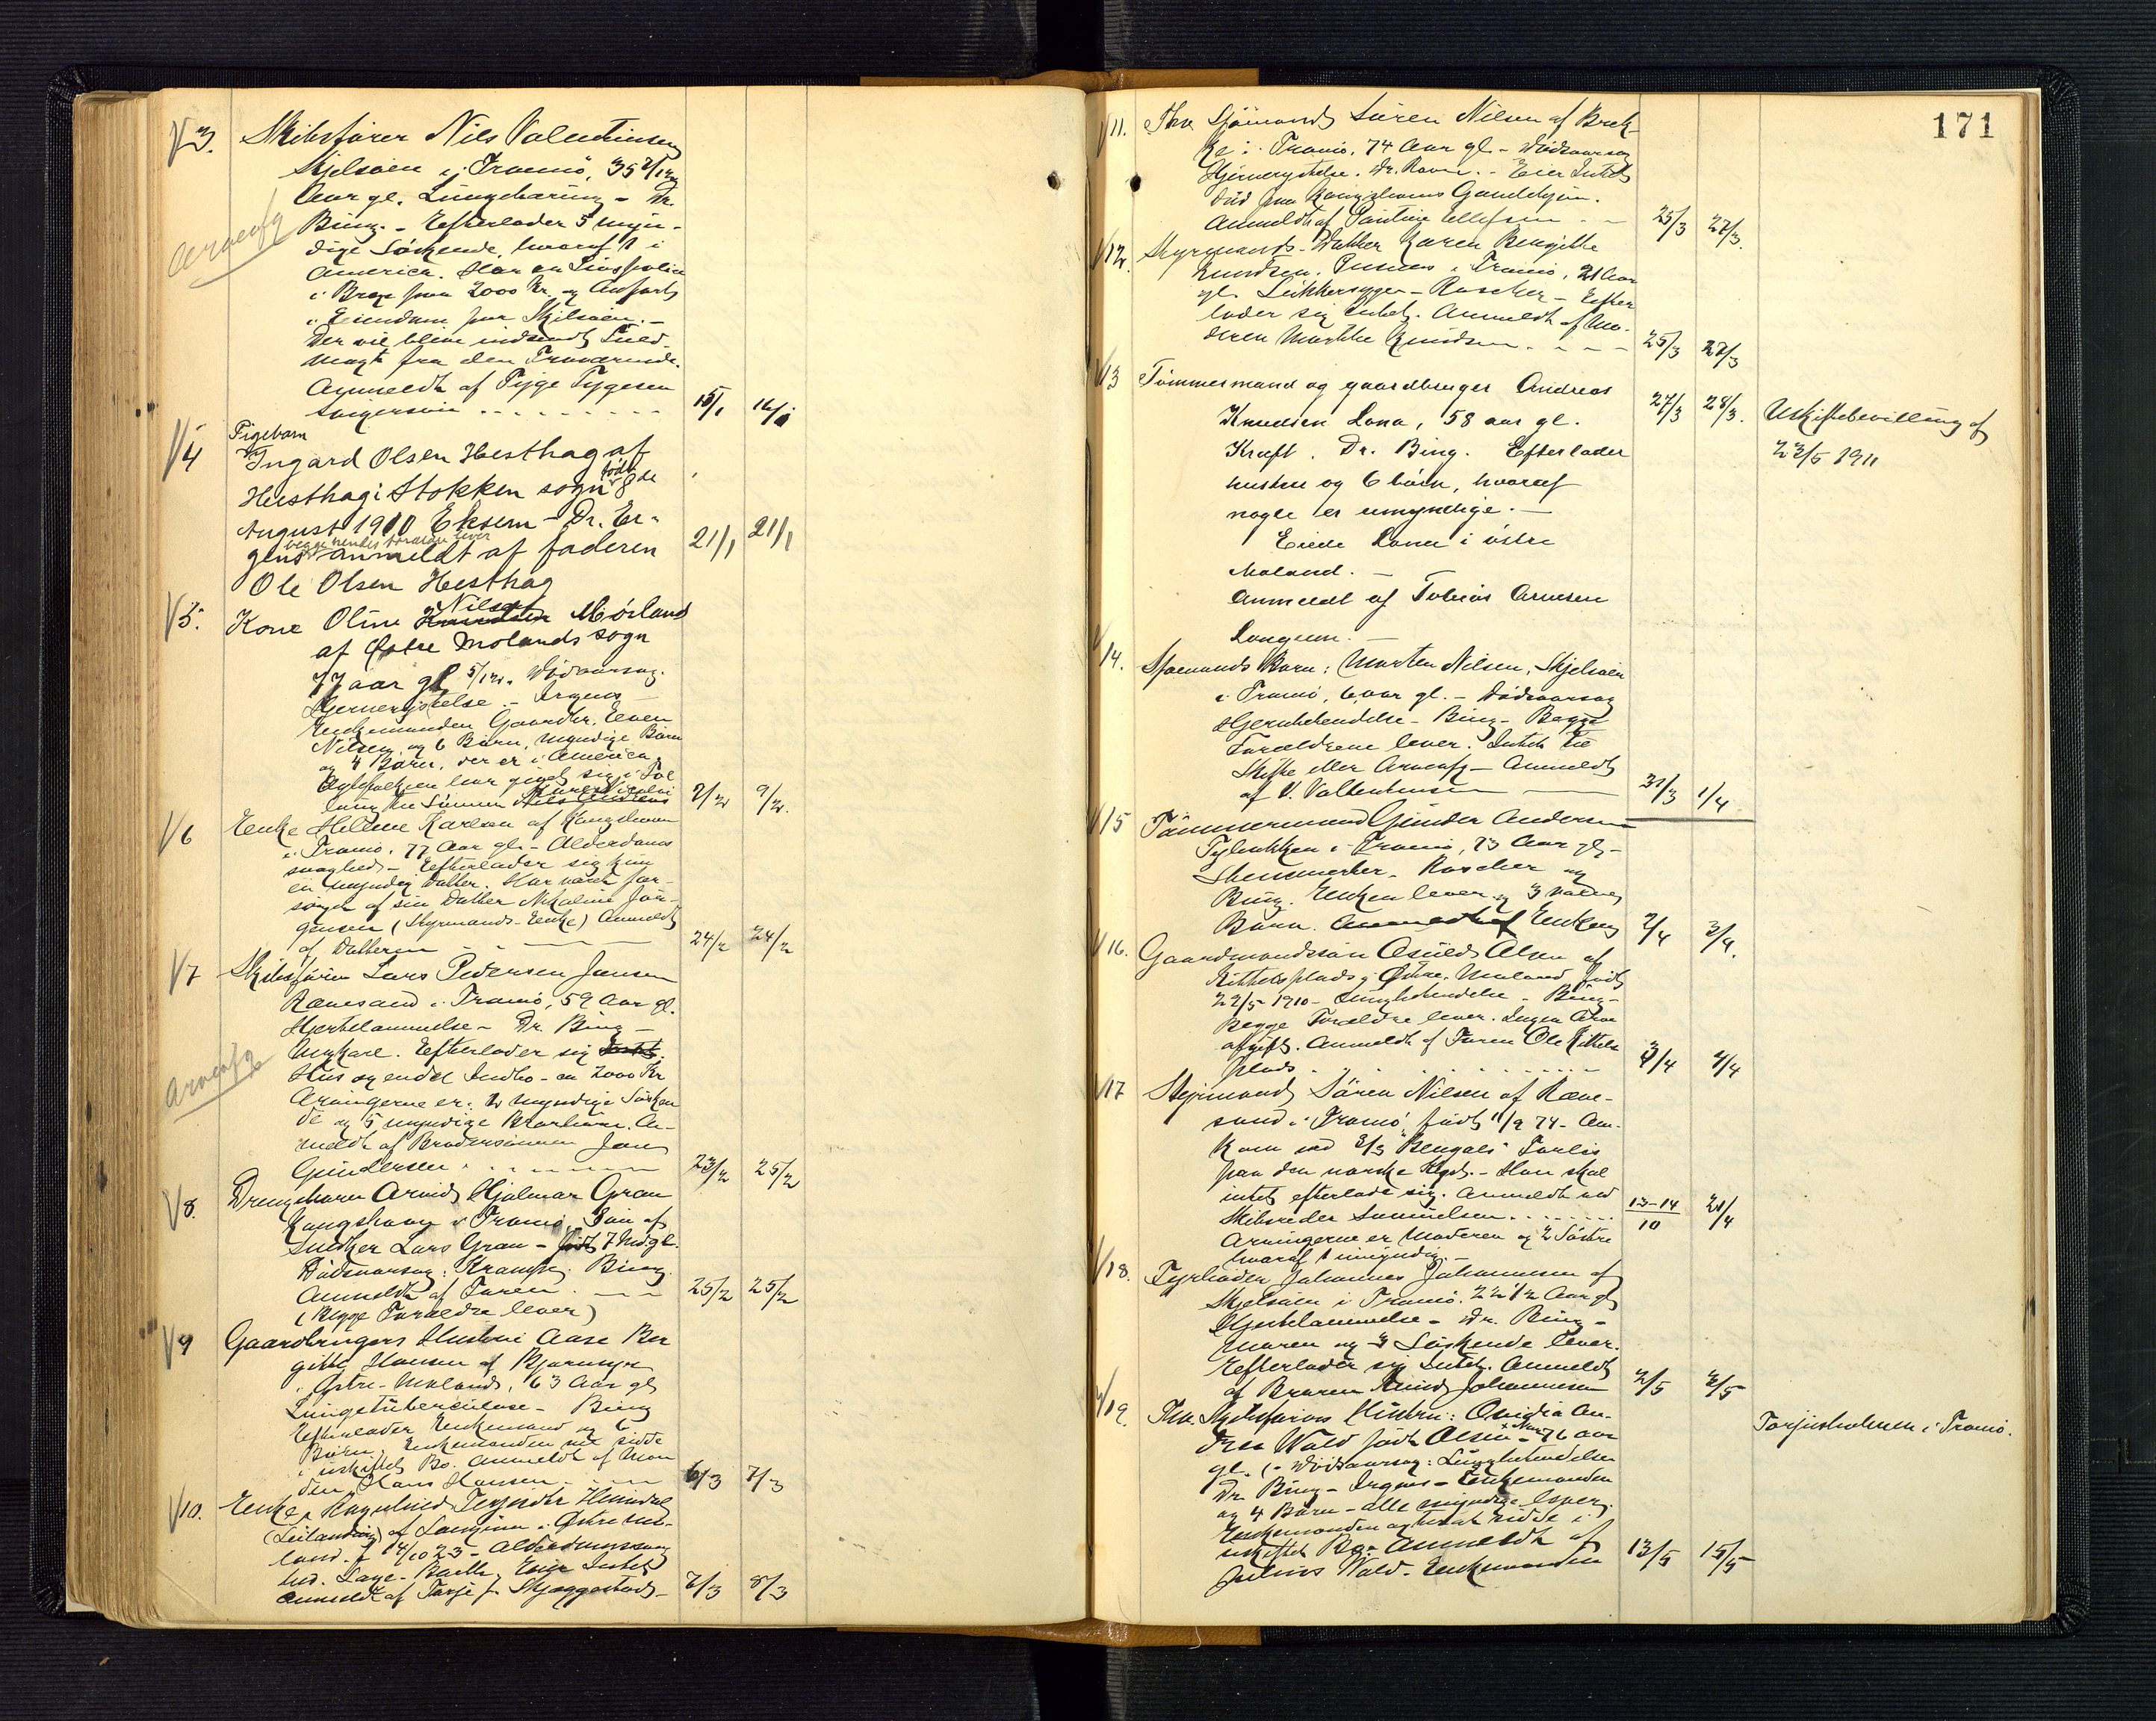 3. Skibsfører Nils Valentinsen
Skjelsøen i Tromö, 35 2/12
Aar gl. Lungebetænd - Dr.
Bing. - Efterlader 5 myn-
dige Söskende, hvoraf 1 i
America. Har en Livspolice
i Brage paa 2000 Kr. og Anpart
i Eiendom paa Skjelsøen. -
Der vil blive indsendt Fuld-
magt fra den Fraværende.
Anmeldt af Tyge Tygesen
15/1 16/1
Arveafg
4 Pigebarn
Ingard Olsen Hesthag af
Hesthag i Stokken sogn født 8de
August 1910 Eksem - Dr. Er-
begge hendes forældre lever
gens anmeldt af faderen 21/1 21/1
Ole Olsen Hesthag
5. Kone Oline Nilsen Mörland
af Østre Molands sogn
77 aar gl 5/12. Dödsaarsag.
Hjernerystelse - Irgens -
Enkemanden Gaardbr. Even
Nilsen, og 6 Börn, myndige Börn
og 4 Börn, der er i America,
lang hos Sönnen 7/2 9/2.
6 Enke Helene Karlsen af Kongshavn
i Tromö. 77 Aar gl. - Alderdoms
svaghed - Efterlader sig kun
en myndig Datter. Har været for-
sörget af sin Datter Nikoline Jör-
gensen (Styrmands-Enke) Anmeldt
af Datteren 24/2 24/2
7 Skibsförer Lars Pedersen Jansen
Rævesand i Tromö, 59 Aar gl.
Hjertelammelse - Dr. Bing -
Ungkarl. Efterlader sig Intet,
Hus og endel Indbo - ca 2000 Kr
Arvingerne er: 2 myndige Södsken
de og 5 myndige Brorbörn. An-
meldt af Brodersönnen Jans
Gundersen 23/2 25/2
Arveafg
8. Drengebarn Arvid Hjalmar Gran
Kongshavn i Tromö. Sön af
Snedker Lars Gran - født 7 Md. gl.
Dödsaarsag: Krampe. Bing.
Anmeldt af Faren 25/2 25/2
(Begge Forældre lever)
9 Gaardbrugers Hustru Aase Ber
gitte Hansen af Bjørnmyr
i Østre-Molands, 63 Aar gl
Lungetuberculose - Bing
Efterlader Enkemand og 6
Börn, Enkemanden vil sidde
i uskiftet Bo. Anmeldt af Man
den, Hans Hansen 6/3 7/3
10. Enke Ragnhild Terjesdtr Heimdal
af Longum i Østre Mo-
land. f. 14/10 23 - Alderdomssvag
hed. Læge - Barth. Eier Intet
Anmeldt af Terje J. Skjeggestad - 7/3 8/3
171
11. Fhv. Sjömand Sören Nilsen af Brek-
ke i Tromö. 74 Aar gl. - Dödsaarsag
Hjernerystelse. Dr. Ravn. - Eier Intet
Död paa Kongshavns Gamlehjem.
Anmeldt af Pauline Ellefsen 25/3 27/3.
12. Styrmands-Datter Karen Bergitte
Knudsen. Pusnes i Tromö, 21 Aar
gl. Sukkersyge - Roscher - Efter
lader sig Intet. Anmeldt af Mo-
deren Marthe Knudsen 25/3 27/3
13 Tömmermand og gaardbruger Andreas
Knudsen Lona, 58 aar gl. 27/3 28/3. Uskiftebevilling af
Kræft. Dr. Bing. Efterlader 23/5 1911
hustru og 6 börn, hvoraf
nogle er umyndige. -
Eiede Lona i östre
Moland. -
Anmeldt af Tobias Arnesen
Longum. -
14. Sjömands Barn: Morten Nilsen, Skjelsøen
i Tromö, 6 aar gl. - Dödsaarsag
Hjernebetendelse - Bing - Begge
Forældrene lever. Intet til
Skifte eller Arveafg - Anmeldt
af V. Valentinsen 31/3 1/4
15 Tömmermand Gunder Andersen
i Tromö, 73 Aar gl.
Roscher og
Bing. Enken lever og 3 voksne
Börn. Anmeldt af Enken 2/4 3/4.
16. Gaardmandssön Asuld Olsen af
Kittelsplads i Østre Moland födt
22/5 1910 - Lungebetendelse - Bing -
Begge Forældre lever. Ingen Arve
afgift. Anmeldt af Faren Ole Kittels
plads 3/4 4/4
17 Styrmand Sören Nilsen af Ræve-
sand i Tromö, født 11/9 74 - Om-
kom ved 3/3 "Bengals" Forlis
paa den norske Kyst. - Han skal
intet efterlade sig. Anmeldt ved
Skibsreder Samuelsen 13-14/10 20/4
Arvingerne er Moderen og 2 Söstre
hvoraf 1 umyndig. -
18. Fyrböder Johannes Johannesen af
Skjelsöen i Tromö. 22 1/2 Aar gl
Hjertelammelse - Dr. Bing -
Moren og 3 Söskende lever.
Efterlader sig Intet. Anmeldt
af Broren Knud Johannesen 2/5 3/5
19. Fhv. Skibsförers Hustru: Ovidia An-
drea Wold født Olsen - 76 aar Torjusholmen i Tromö.
gl. - Dödsaarsag: Lungebetendelse
Dr. Bing - Irgens - Enkemanden
og 4 Börn - alle myndige lever.
Enkemanden agter at sidde i
uskiftet Bo - Anmeldt af
Julius Wold - Enkemanden 13/5 15/5